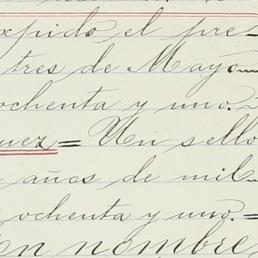 xpido el pre-
tres de Mayo
ochenta y uno.-
uez= Un sello
años de mil
ochenta y uno.=
en nombre